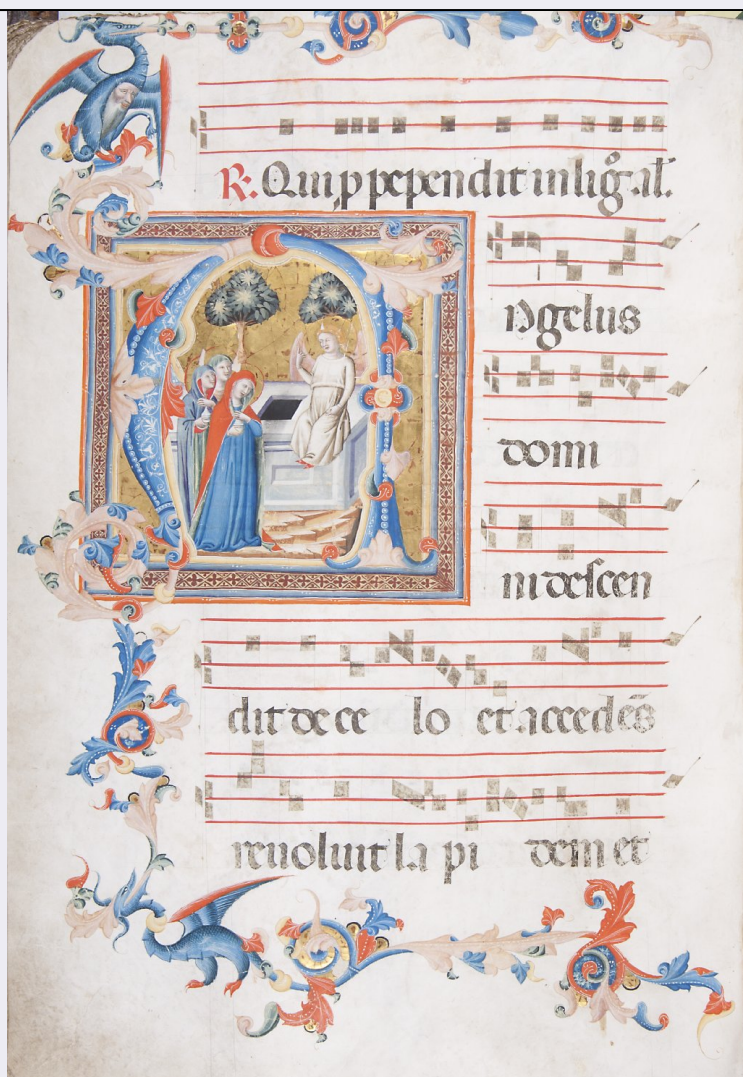 R. Qui p pependit in lig̃. al̃.
Angelus
domi
ni descen
dit de ce lo et accedẽs
reuoluit la pi dem et